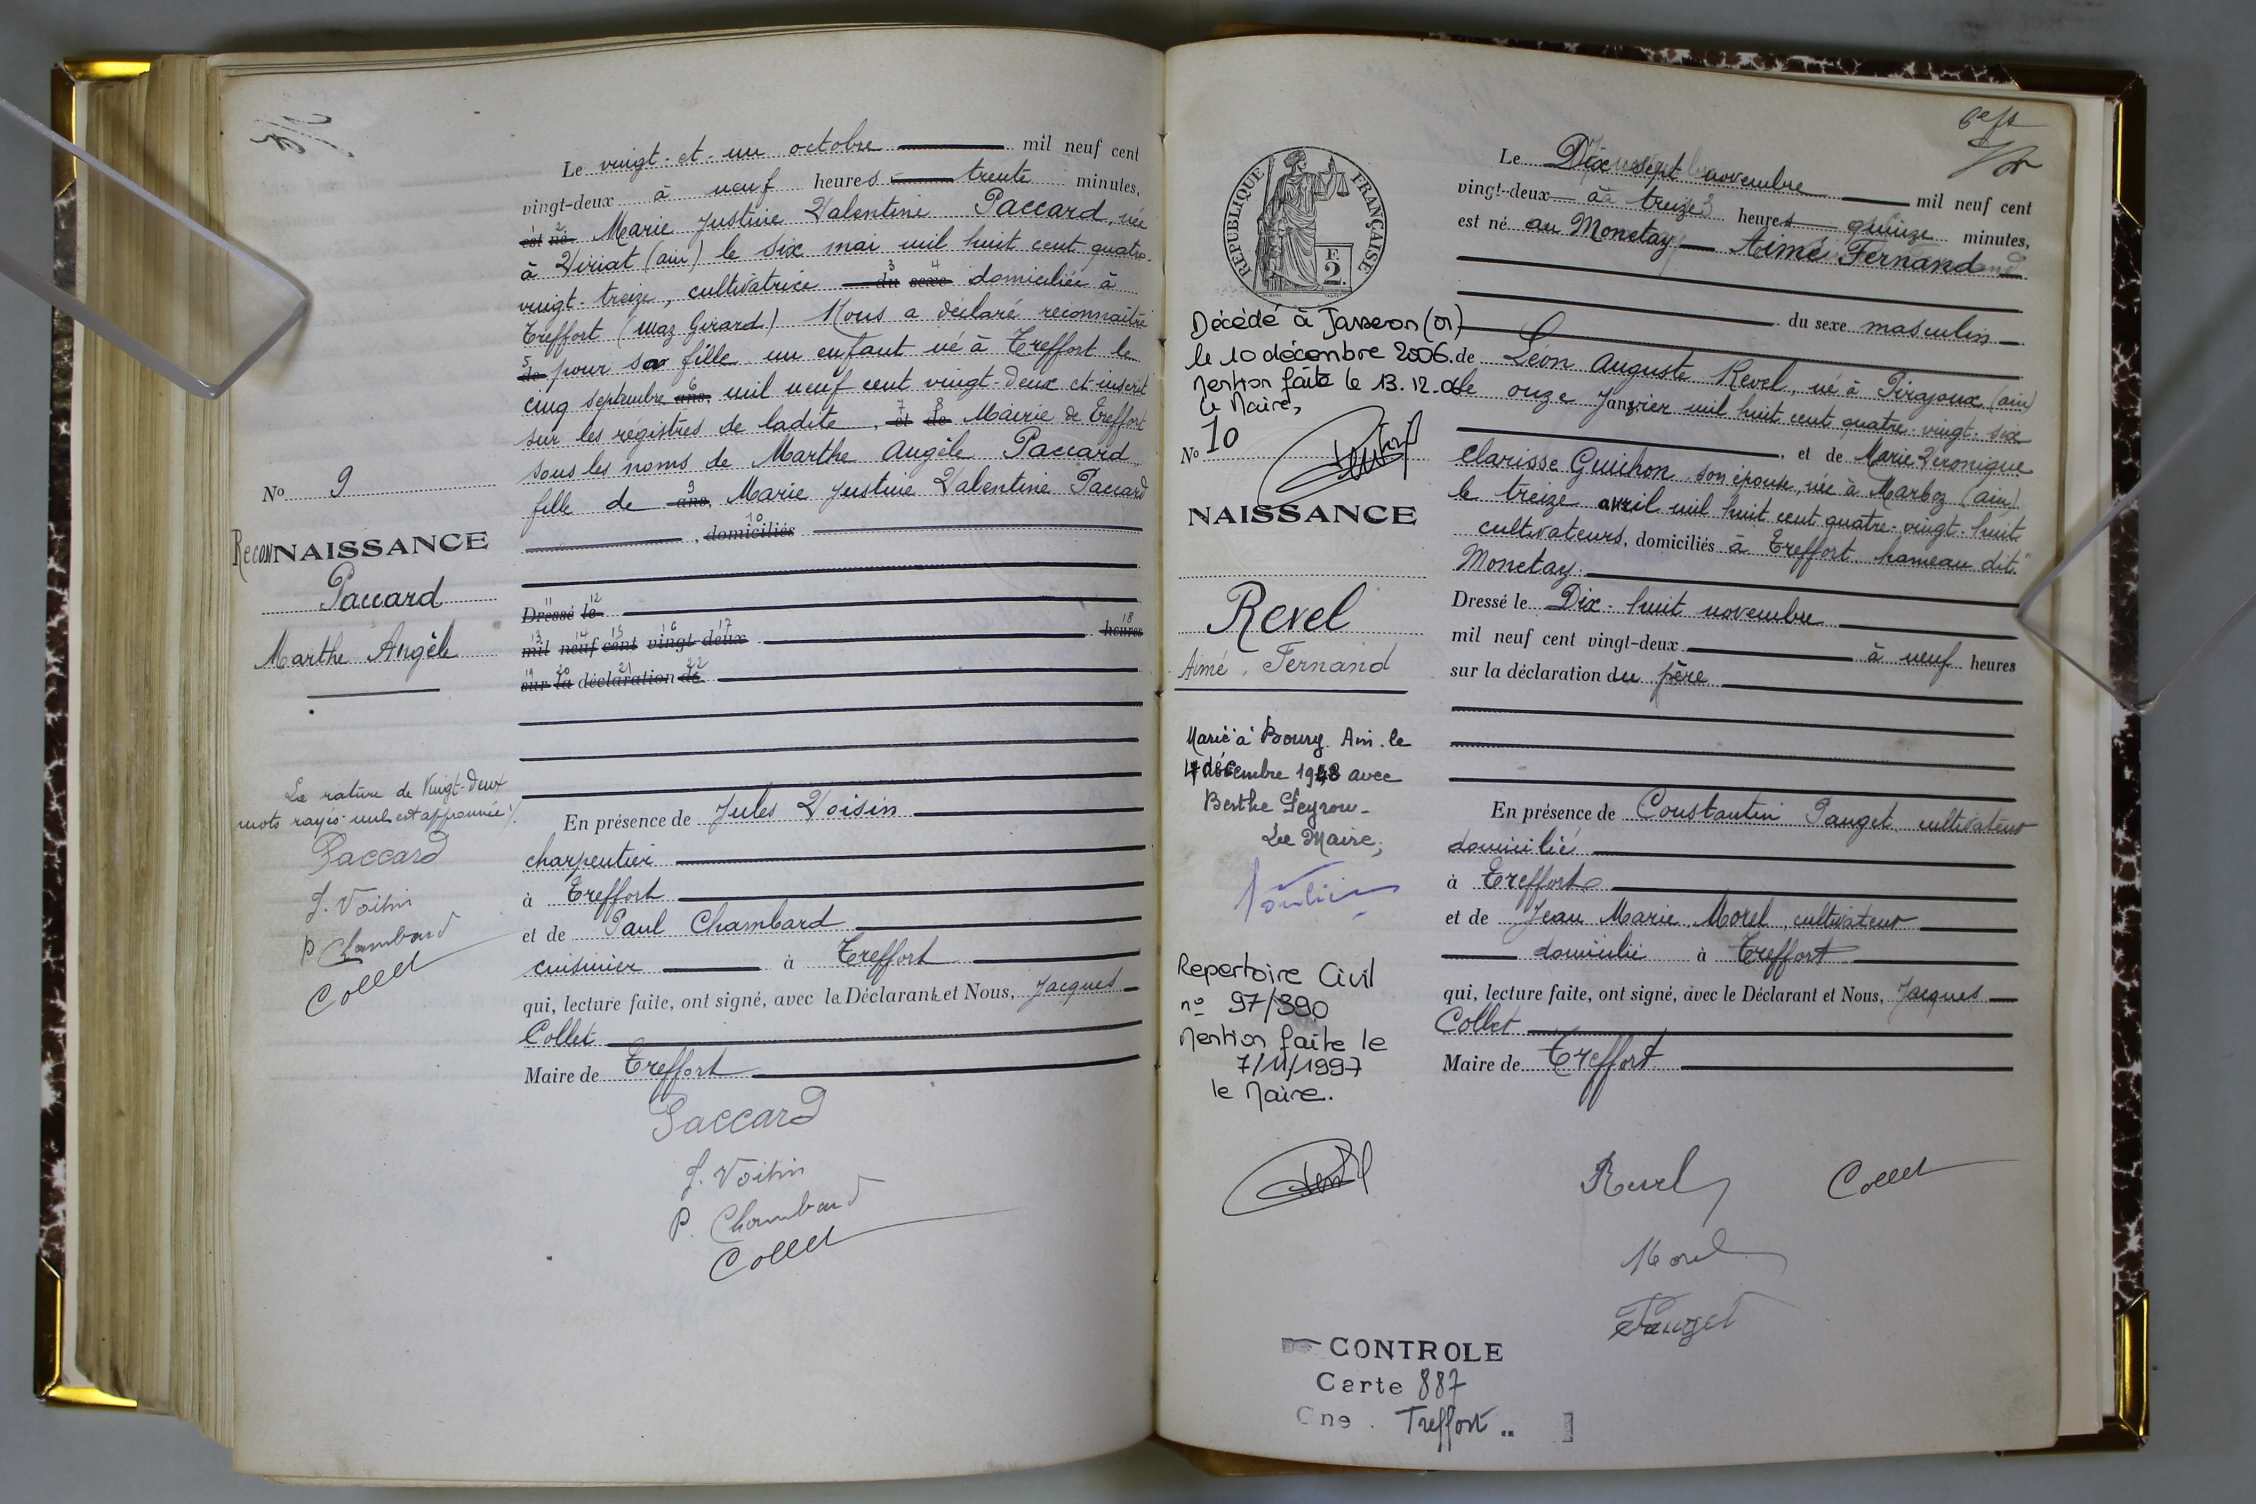 Le vingt-et-un octobre mil neuf cent
vingt-deux à neuf heures trente minutes,
est né Marie Justine Valentine Paccard, née
à Viriat (ain) le six mai mil huit cent quatre-
vingt-treize, cultivatrice du sexe domiciliée à
Treffort (maz Girard) Nous a déclaré reconnaitre
de pour sa fille un enfant né à Treffort le
cinq septembre ans, mil neuf cent vingt-deux et inscrit
sur les régistres de ladite, et de Mairie de Treffort
sous les noms de Marthe Angèle Paccard
fille de ans, Marie Justine Valentine Paccard
, domiciliés
Dressé le
mil neuf cent vingt-deux heures
sur la déclaration de
En présence de Jules Voisin
charpentier
à Treffort
et de Paul Chambard
cuisinier à Treffort
qui, lecture faite, ont signé, avec la Déclarante et Nous, Jacques
Collet
Maire de Treffort
Paccard
J. Voisin
P. Chambard
Collet
No 9
ReconNAISSANCE
Paccard
Marthe Angèle
La rature de Vingt-deux
mots rayés nuls est approuvée /.
Paccard
J. Voisin
P Chambard
Collet
RÉPUBLIQUE FRANÇAISE
F.
2.
Décédé à Jasseron (01)
le 10 décembre 2006.
Mention faite le 13.12.06
Le Maire,
No 10
NAISSANCE
Revel
Aimé, Fernand
Marié à Bourg. Ain. le
4 décembre 1948 avec
Berthe Peyrou-
Le Maire,
Repertoire Civil
no 97/390
Mention faite le
7/11/1997
le Maire.
6e
Le Dix-sept novembre mil neuf cent
vingt-deux à treize heures quinze minutes,
est né au Monetay Aimé Fernand
du sexe masculin
de Léon Auguste Revel, né à Pirajoux (ain)
le onze janvier mil huit cent quatre-vingt-six
et de Marie Véronique
Clarisse Guichon son épouse, née à Marboz (ain)
le treize avril mil huit cent quatre-vingt-huit
cultivateurs, domiciliés à Treffort hameau dit "
Monetay.
Dressé le Dix-huit novembre
mil neuf cent vingt-deux à neuf heures
sur la déclaration du père
En présence de Constantin Pauget cultivateur
domicilié
à Treffort
et de Jean Marie Morel, cultivateur
domicilié à Treffort
qui, lecture faite, ont signé, avec le Déclarant et Nous, Jacques
Collet
Maire de Treffort
Revel Collet
Morel
Pauget
CONTROLE
Carte 887
Cne. Treffort